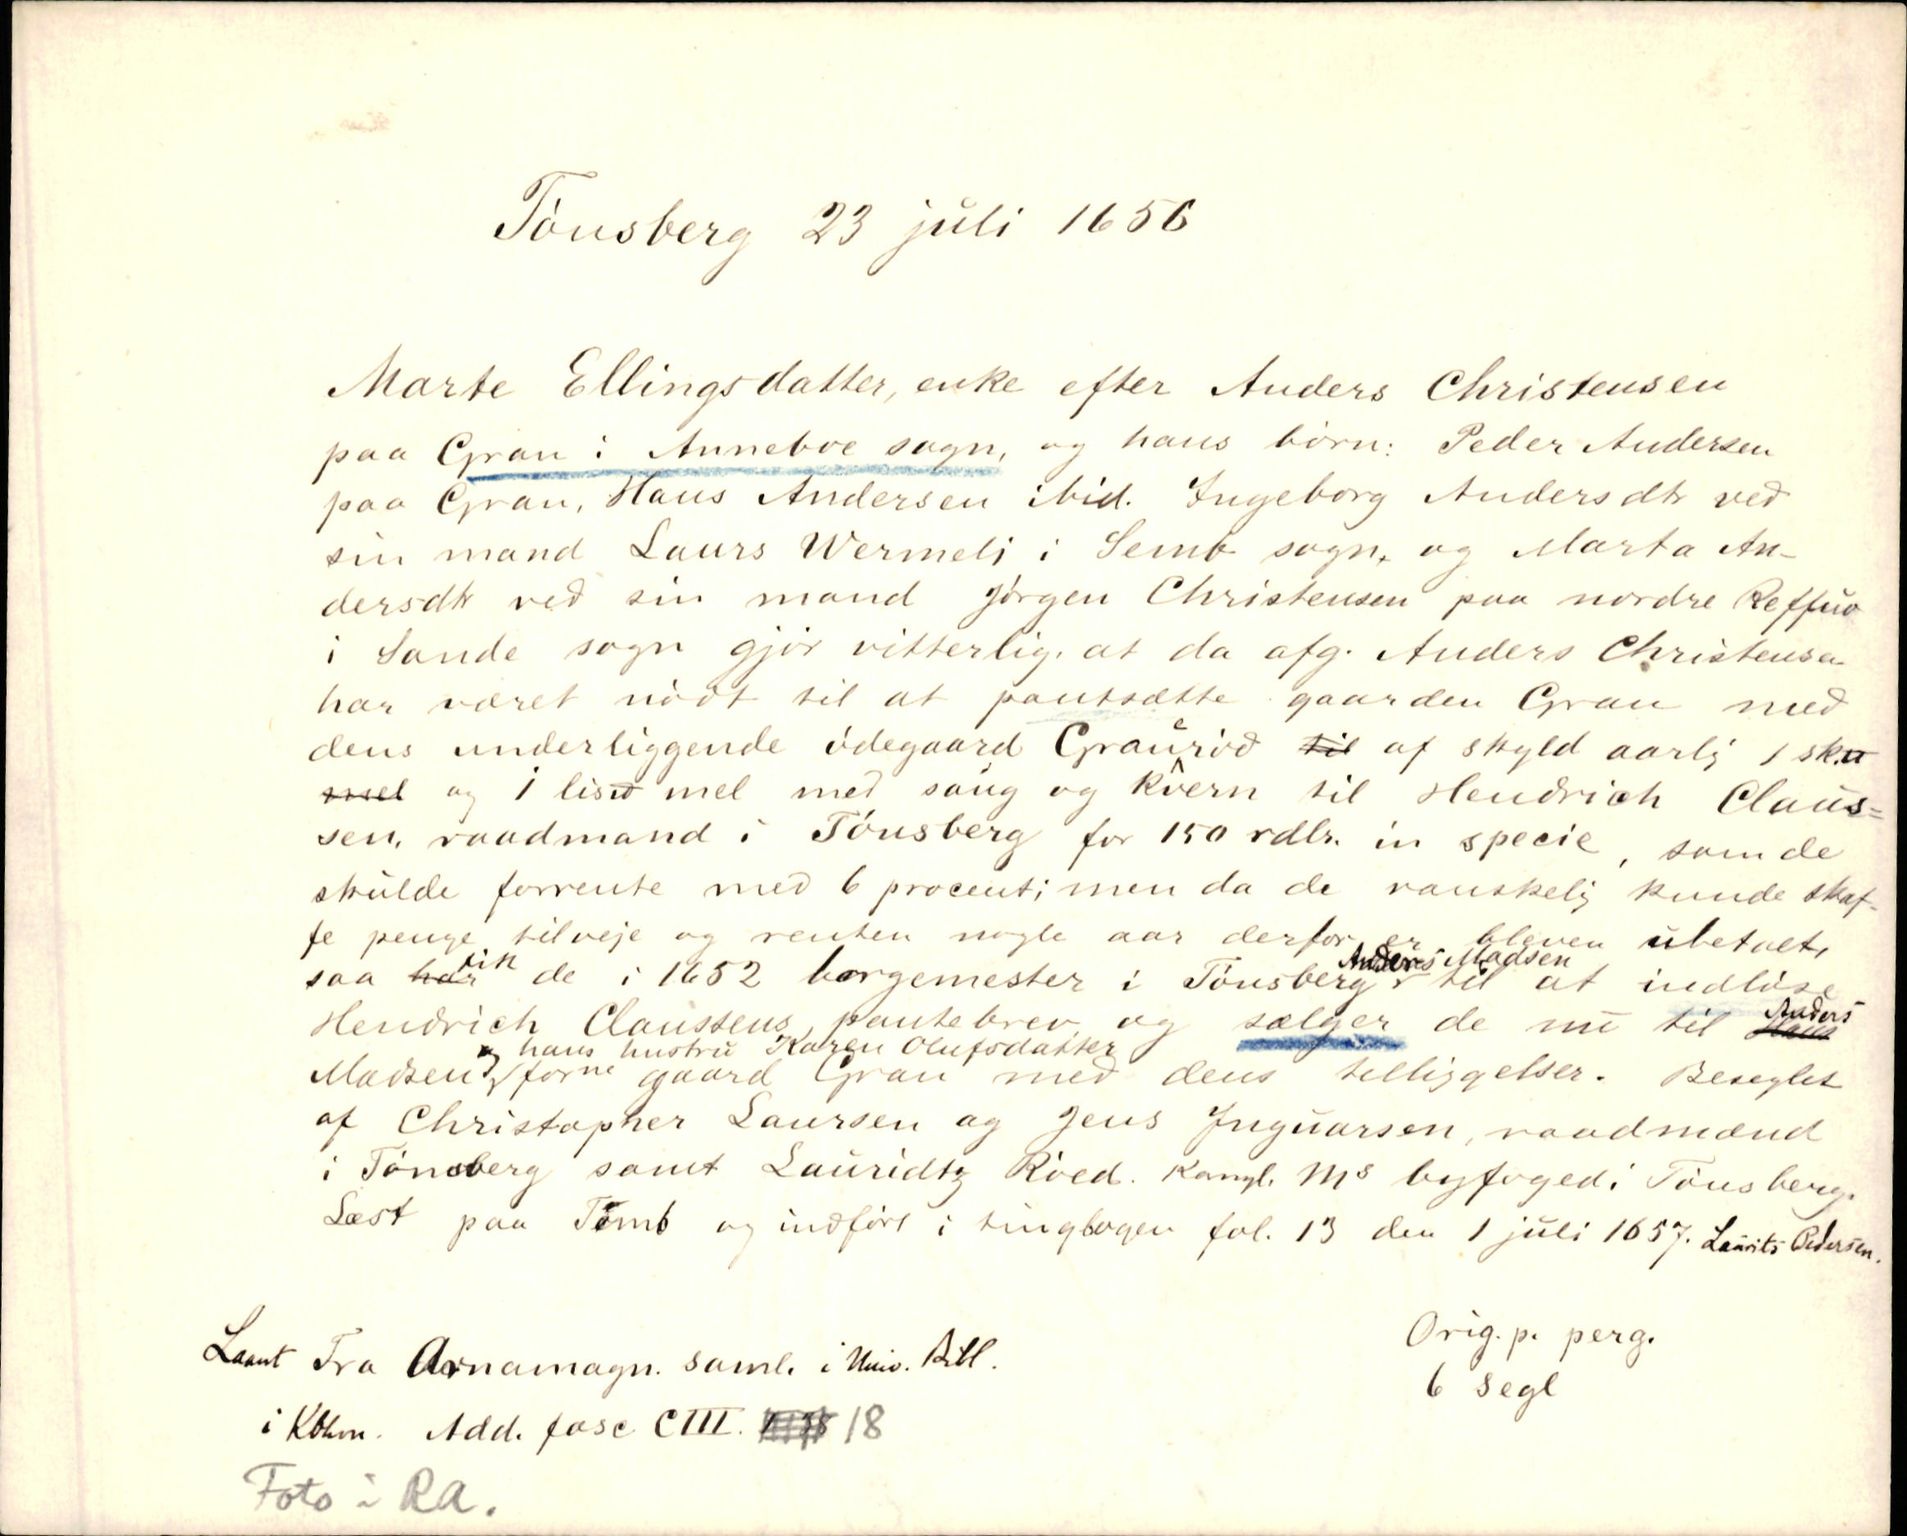 Tönsberg 23 juli 1656
Marte Ellingsdatter, enke efter Anders Christensen
paa Gran i Anneboe sogn, og hans börn: Peder Andersen
paa Gran, Hans Andersen ibid. Ingeborg Andersdtr ved
sin mand Laurs Wermeli i Semb sogn, og Marta An-
dersdtr ved sin mand Jörgen Christensen paa nordre Reffuo
i Sande sogn gjör vitterlig, at da afg. Anders Christensen
har været nödt til at pantsætte gaarden Gran med
dens underliggende ödegaard Graueröd til af skyld aarlig 1 sk.℔
mel og 1 lis℔ mel med saug og kvern til Hendrich Claus=
sen, raadmand i Tönsberg for 150 rdlr. in specie, som de
skulde forrente med 6 procent; men da de vanskelig kunde skaf-
fe penge tilveje og renten nogle aar derfor er bleven ubetalt,
saa har fik de i 1652 borgemester i Tönsberg Anders Madsen til at indlöse
Hendrich Claussens pantebrev og sælger de nu til Hans Anders
Madsen og hans hustru Karen Olufsdatter forne gaard Gran med dens tilliggelser. Beseglet
af Christopher Laursen og Jens Inguarsen, raadmænd
i Tönsberg samt Lauridtz Röed. Kongl. Ms byfoged i Tönsberg.
Læst paa Tömb og indfört i tingbogen fol. 13 den 1 juli 1657. Laurits Pedersen.
Orig. p. perg.
6 segl
Laant Fra Arnamagn. saml. i Univ. Bibl.
i Kbhvn. Add. fasc CIII. 18
Foto i RA.